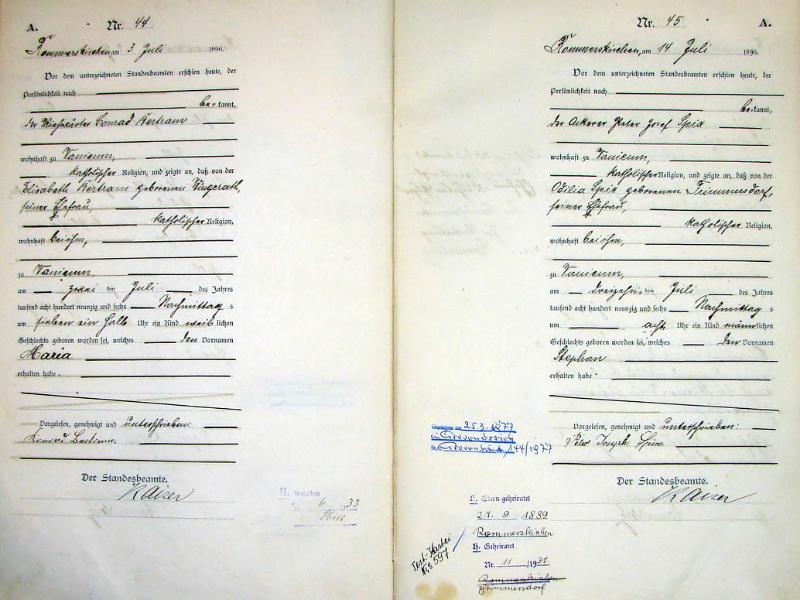 A.
Nr. 44
Rommerskirchen, am 3 Juli 1896.
Vor dem unterzeichneten Standesbeamten erschien heute, der
Persönlichkeit nach
bekannt,
der Conrad Bertram
wohnhaft zu Vanicum,
katholischer Religion, und zeigte an, daß von der
Elisabeth Bertram geborenen
seiner Ehefrau,
katholischer Religion,
wohnhaft bei ihm,
zu Vanicum
am zwei ten Juli des Jahres
tausend acht hundert neunzig und sechs Nachmittags
um sieben ein halb Uhr ein Kind weiblichen
Geschlechts geboren worden sei, welches den Vornamen
Maria
erhalten habe.
Vorgelesen, genehmigt und unterschrieben.
Der Standesbeamte.
Kaiser
H.
6 33
Nr. 45
A.
Rommerskirchen, am 14 Juli 1896
Vor dem unterzeichneten Standesbeamten erschien heute, der
Persönlichkeit nach
bekannt,
der Ackerer Peter Josef Spix
wohnhaft zu Vanicum,
katholischer Religion, und zeigte an, daß von der
Cäcilia Spix geborenen Trimmersdorf,
seiner Ehefrau,
katholischer Religion,
wohnhaft bei ihm,
zu Vanicum,
am dreizehn ten Juli des Jahres
tausend acht hundert neunzig und sechs Nachmittags
um acht Uhr ein Kind männlichen
Geschlechts geboren worden sei, welches den Vornamen
Stephan
erhalten habe.
Vorgelesen, genehmigt und unterschrieben:
Peter Joseph Spix
Der Standesbeamte.
Kaiser
Gestorben am 25.3.1977
in Grevenbroich
44/1977
Eltern geheiratet
1889
Rommerskirchen
H. Geheiratet
Nr. 11 /19
Rommerskirchen
597